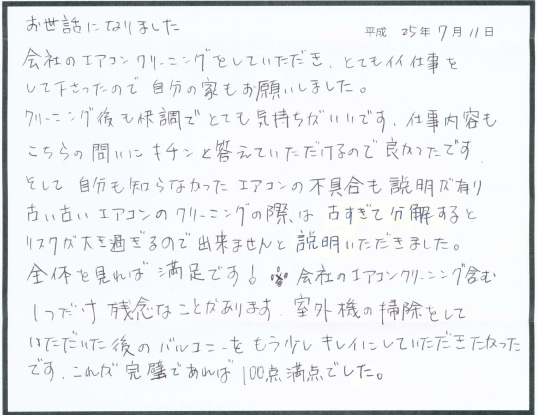 お世話になりました
平成 25年7月11日
会社のエアコンクリーニングをしていただき、とてもイイ仕事を
して下さったので自分の家もお願いしました。
クリーニング後も快調でとても気持ちがいいです。仕事内容も
こちらの問いにキチンと答えていただけるので良かったです
そして自分も知らなかったエアコンの不具合も説明が有り
古い古いエアコンのクリーニングの際は古すぎて分解すると
リスクが大き過ぎるので出来ませんと説明いただきました。
全体を見れば満足です! ※会社のエアコンクリーニング含む
1つだけ残念なことがあります。室外機の掃除をして
いただいた後のバルコニーをもう少しキレイにしていただきたかった
です。これが完璧であれば100点満点でした。